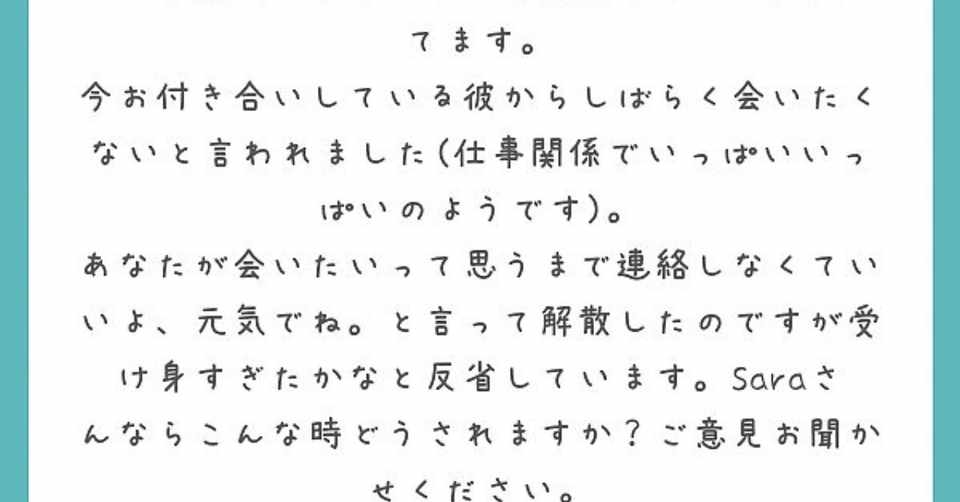 てます。
今お付き合いしている彼からしばらく会いたく
ないと言われました(仕事関係でいっぱいいっ
ぱいのようです)。
あなたが会いたいって思うまで連絡しなくてい
いよ、元気でね。と言って解散したのですが受
け身すぎたかなと反省しています。Saraさ
んならこんな時どうされますか？ご意見お聞か
せください。